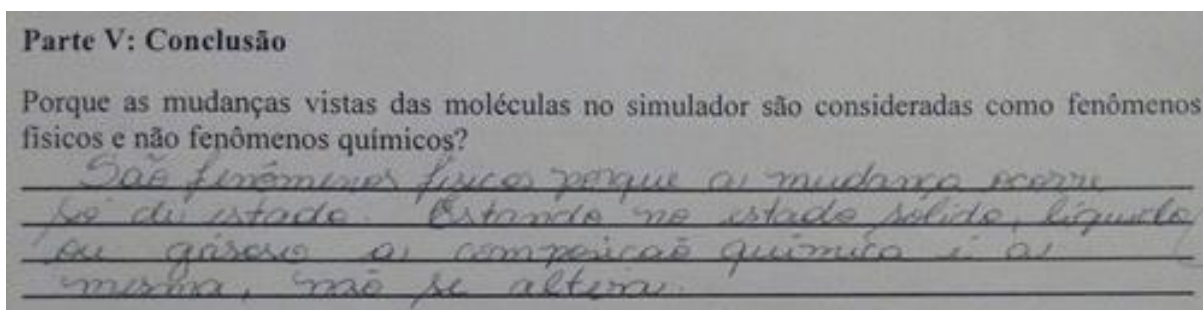 Parte V: Conclusão
Porque as mudanças vistas das moléculas no simulador são consideradas como fenômenos
físicos e não fenômenos químicos?
São fenômenos físicos porque a mudança ocorre
só de estado. Estando no estado sólido, líquido
ou gásoso a composição química é a
mesma, não se altera.